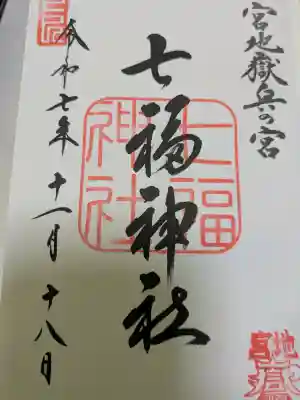 宮地嶽奥の宮
七福神社
七福
神社
令和七年十一月十八日
地嶽
宮